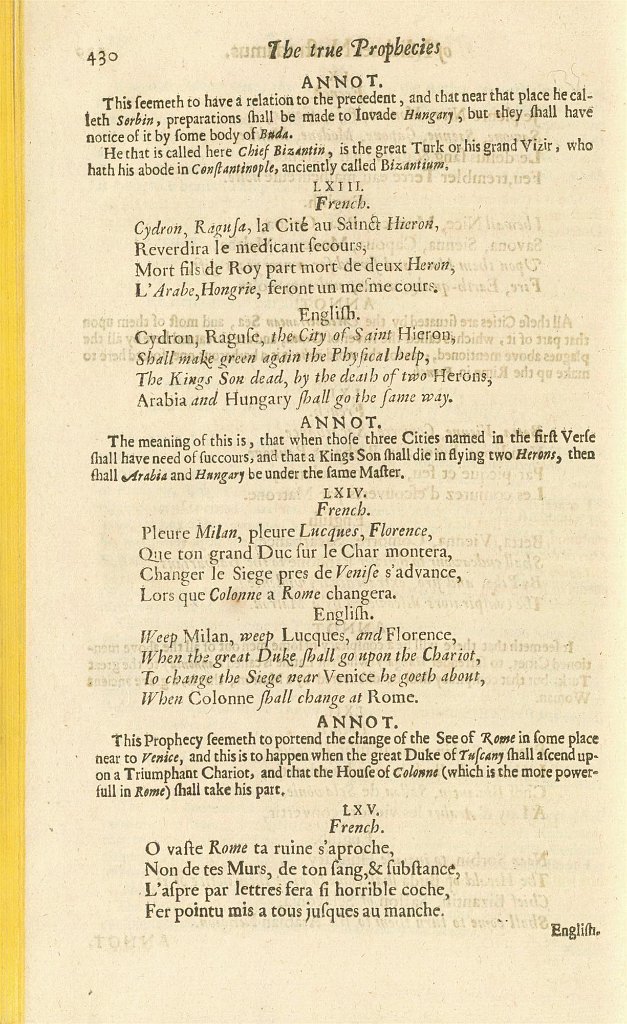 430 The true Prophecies
ANNOT.
This ſeemeth to have a relation to the precedent, and that near that place he cal-
leth Serbin, preparations ſhall be made to Invade Hungary, but they ſhall have
notice of it by ſome body of Buda.
He that is called here Chief Bizantin, is the great Turk or his grand Vizir, who
hath his abode in Conſtantinople, anciently called Bizantium.
LXIII.
French.
Cydron, Raguſa, la Cité au Sainct Hieron,
Reverdira le medicant ſecours,
Mort fils de Roy part mort de deux Heron,
L'Arabe, Hongrie, feront un meſme cours.
Engliſh.
Cydron, Raguſe, the City of Saint Hieron,
Shall make green again the Phyſical help,
The Kings Son dead, by the death of two Herons,
Arabia and Hungary ſhall go the ſame way.
ANNOT.
The meaning of this is, that when thoſe three Cities named in the firſt Verſe
ſhall have need of ſuccours, and that a Kings Son ſhall die in flying two Herons, then
ſhall Arabia and Hungary be under the ſame Maſter.
LXIV.
French.
Pleure Milan, pleure Lucques, Florence,
Que ton grand Duc ſur le Char montera,
Changer le Siege pres de Veniſe s'advance,
Lors que Colonne a Rome changera.
Engliſh.
Weep Milan, weep Lucques, and Florence,
When the great Duke ſhall go upon the Chariot,
To change the Siege near Venice he goeth about,
When Colonne ſhall change at Rome.
ANNOT.
This Prophecy ſeemeth to portend the change of the See of Rome in ſome place
near to Venice, and this is to happen when the great Duke of Tuſcany ſhall aſcend up-
on a Triumphant Chariot, and that the Houſe of Colonne (which is the more power-
full in Rome) ſhall take his part.
LXV.
French.
O vaſte Rome ta ruine s'aproche,
Non de tes Murs, de ton ſang, & ſubſtance,
L'aſpre par lettres fera ſi horrible coche,
Fer pointu mis a tous juſques au manche.
Engliſh.